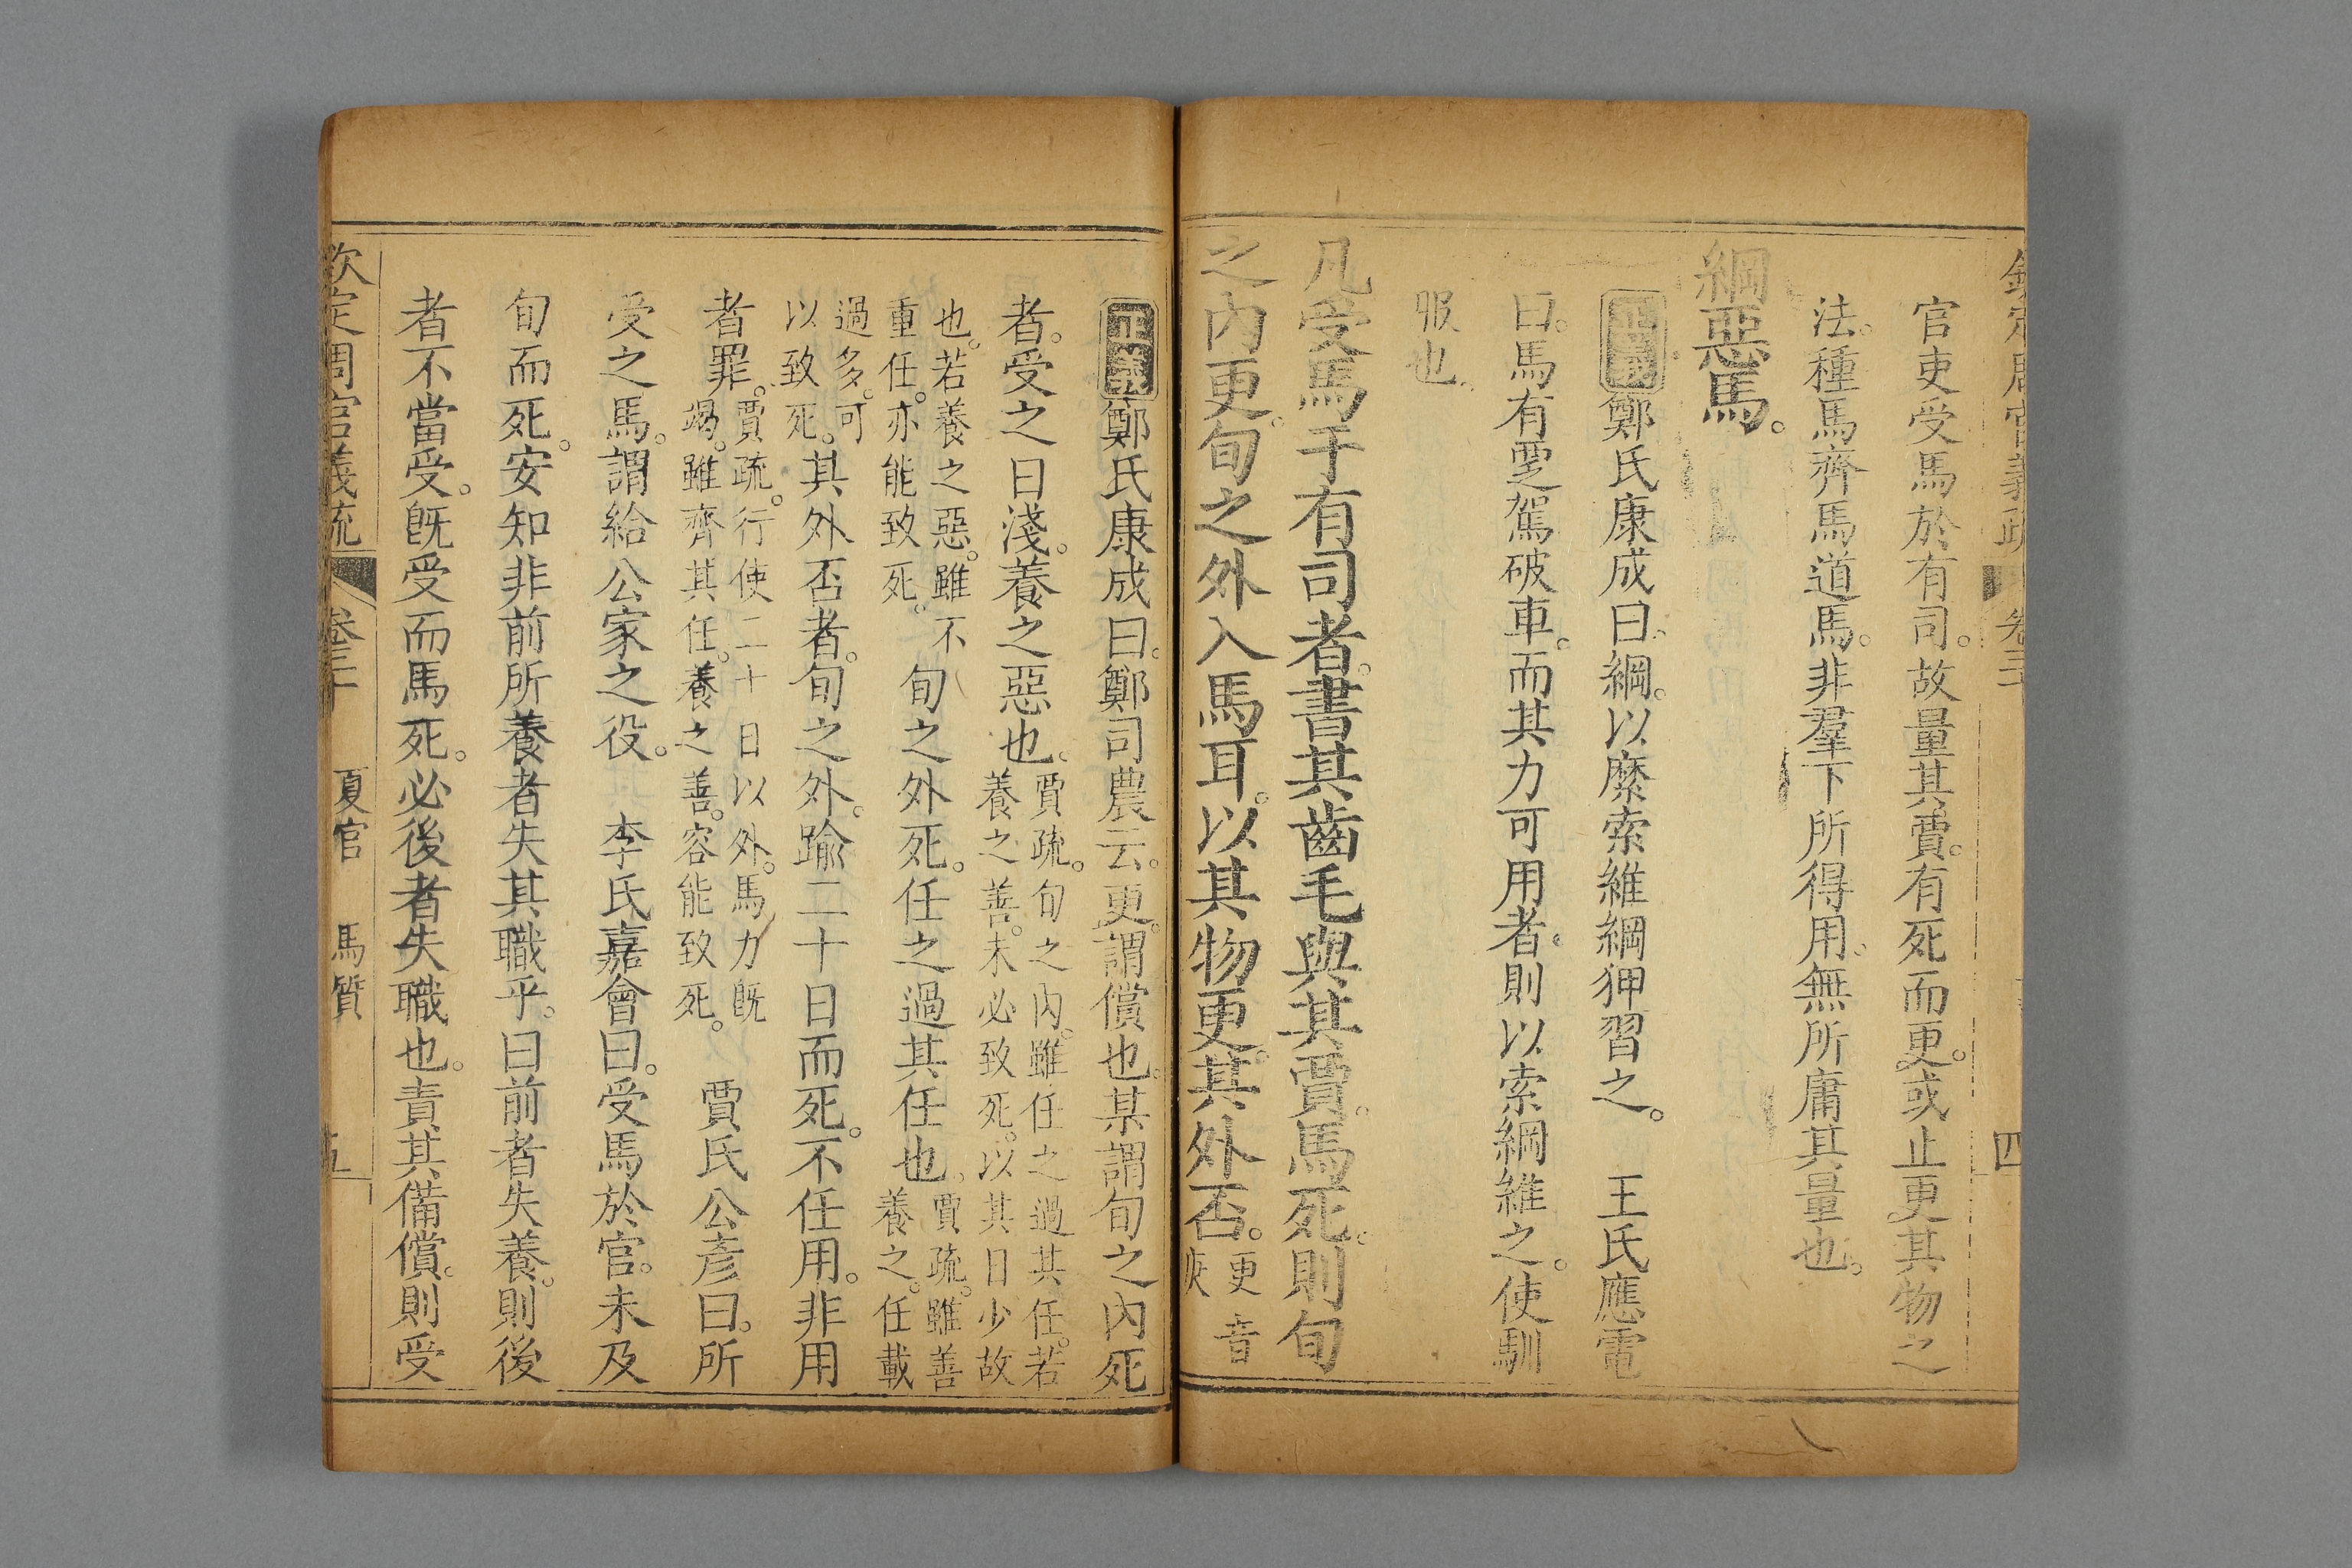 官吏受馬於有司。故量其賣。有死而更。或止更其物之
法。種馬齊馬道馬。非羣下所得用。無所庸其量也。
綱惡馬。
正義鄭氏康成曰。綱。以縻索維綱狎習之。 王氏應電
曰。馬有覂駕破車。而其力可用者。則以索綱維之。使馴
服也。
凡受馬于有司者。書其齒毛與其賈。馬死。則旬
之內更。旬之外入馬耳。以其物更。其外否。更音庚
正義鄭氏康成曰。鄭司農云。更。謂償也。某謂旬之內死
者。受之日淺。養之惡也。賈疏。旬之內。雖任之過其任。若養之善。未必致死。以其日少故
也。若養之惡。雖不重任。亦能致死。旬之外死。任之過其任也。賈疏。雖善養之。任載
過多。可以致死。其外否者。旬之外。踰二十日而死。不任用。非用
者罪。賈疏。行使二十日以外。馬力旣竭。雖齊其任。養之善。容能致死。 賈氏公彥曰。所
受之馬。謂給公家之役。 李氏嘉會曰。受馬於官。未及
旬而死。安知非前所養者失其職乎。曰前者失養。則後
者不當受。旣受而馬死。必後者失職也。責其備償。則受
欽定周官義疏 卷三十 夏官 馬質 五